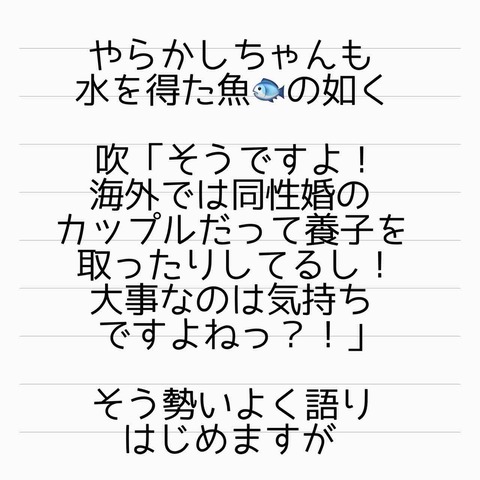 やらかしちゃんも
水を得た魚🐟の如く
吹「そうですよ！
海外では同性婚の
カップルだって養子を
取ったりしてるし！
大事なのは気持ち
ですよねっ？！」
そう勢いよく語り
はじめますが